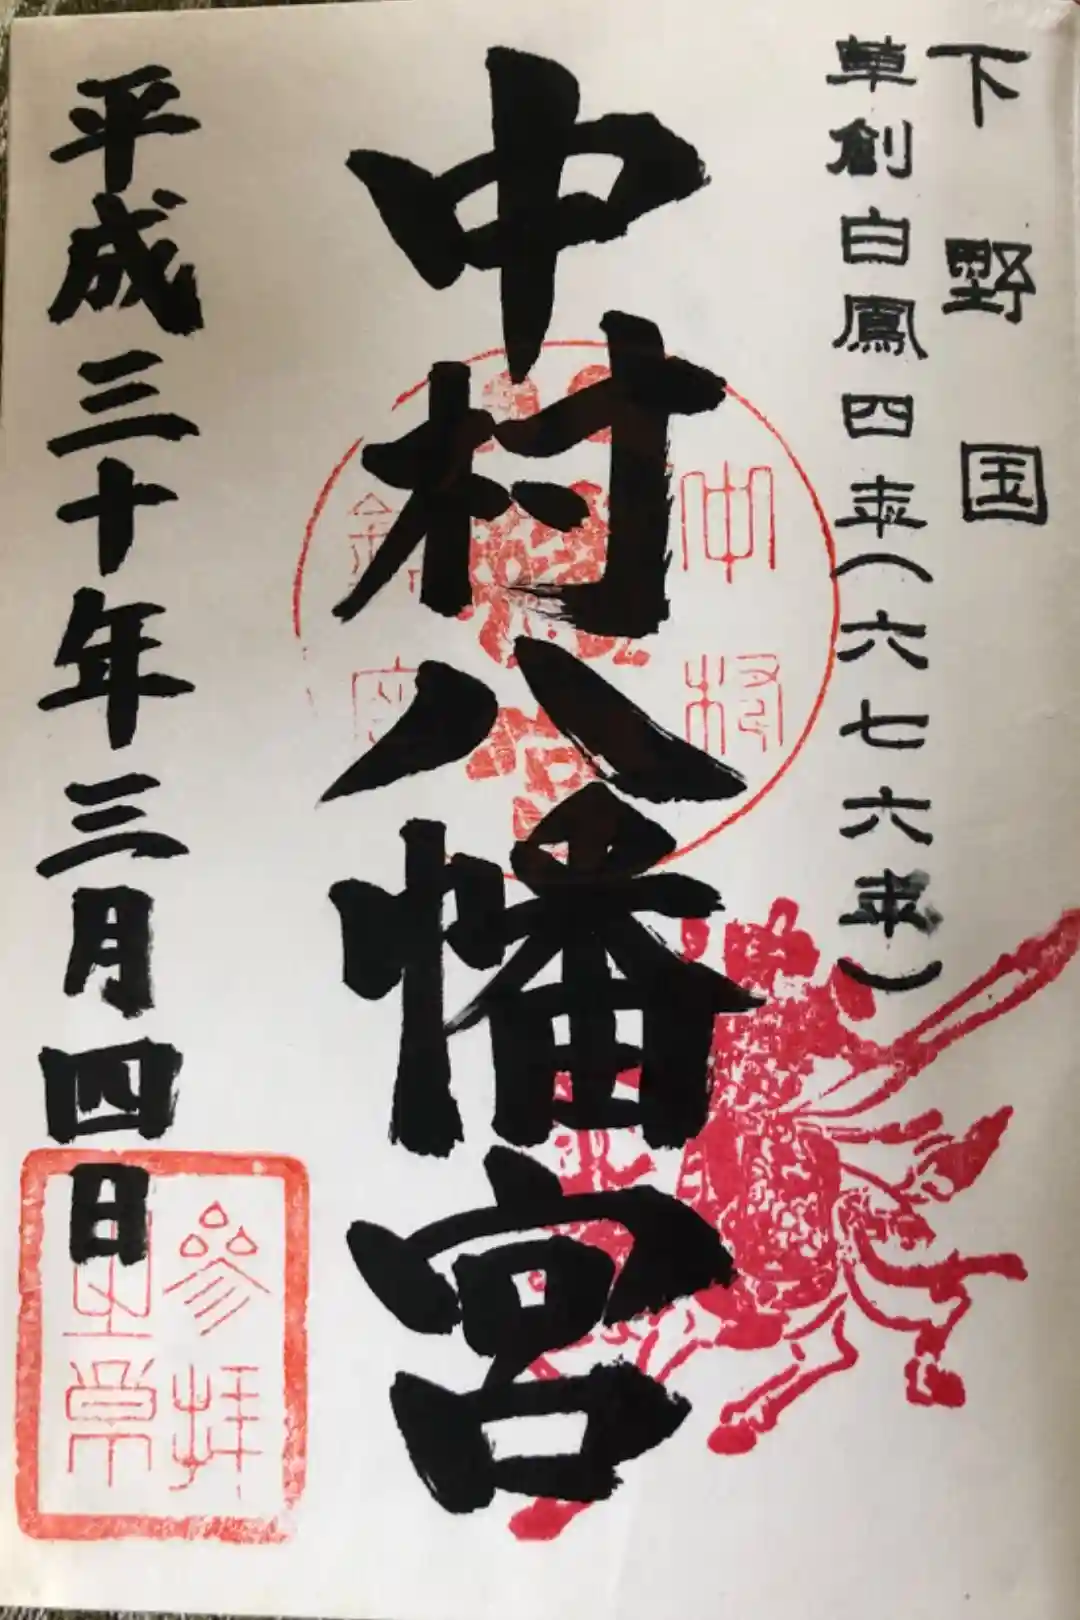 下野国
草創白鳳四年(六七六年)
中村八幡宮
平成三十年三月四日
中村
参拝